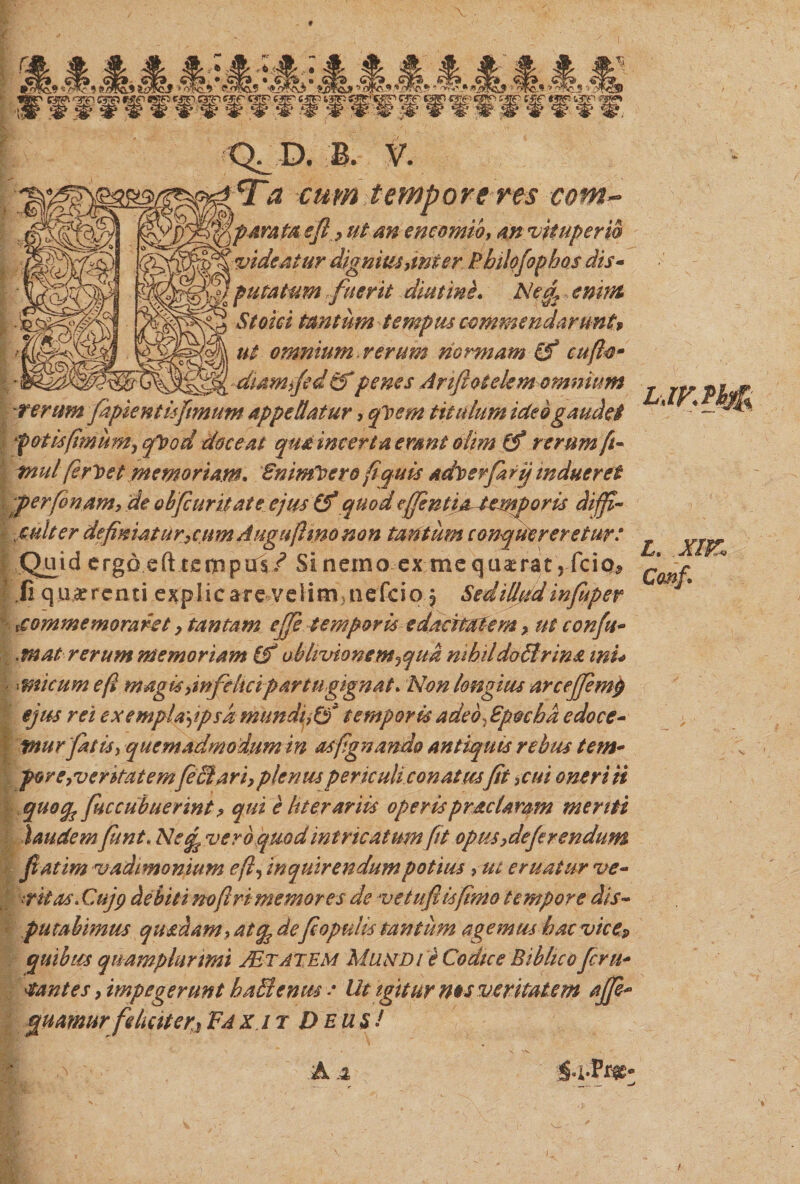 Q. D. B. V.
ITa cum tempore res com-
parata eſt, ut an encomio, an vituperio
videatur dignius, inter Philoſophos dis-
putatum fuerit diutinè. Neq; enim
Stoici tantùm tempus commendarunt,
ut omnium rerum normam & cuſto-
diam, ſed & penes Ariſtotelem omnium
rerum ſapientisſimum appellatur, qvem titulum ideò gaudet
potisſimùm, qvod doceat quæ incerta erant olim & rerum ſi-
mul ſervet memoriam. Enimvero ſi quis adverſarij indueret
perſonam, de obſcuritate ejus & quod eſſentia temporis diffi-
culter definiatur, cum Auguſtino non tantùm conquereretur:
Quid ergò eſt tempus? Si nemo ex me quærat, ſcio,
ſi quærenti explicare velim, neſcio; Sed illud inſuper
commemoraret, tantam eſſe temporis edacitatem, ut conſu-
mat rerum memoriam & oblivionem, quâ nihil doctrinæ ini-
micum eſt magis, infelici partu gignat. Non longius arceſſemꝰ
ejus rei exempla, ipsâ mundi, & temporis adeò, Epochâ edoce-
mur ſatis, quemadmodum in asſignando antiquis rebus tem-
pore, veritatem ſectari, plenus periculi conatus ſit, cui oneri ii
quoq; ſuccubuerint, qui è literariis operis præclaram meriti
laudem ſunt. Neq; verò quod intricatum ſit opus, deferendum
ſtatim vadimonium eſt, inquirendum potius, ut eruatur ve-
ritas. Cujꝰ debiti noſtri memores de vetuſtisſimo tempore dis-
putabimus quædam, atq; de ſcopulis tantùm agemus hac vice,
quibus quamplurimi ÆTATEM MUNDI è Codice Biblico ſcru-
tantes, impegerunt hactenus: Ut igitur nos veritatem aſſe-
quamur feliciter, FAXIT DEUS!
L. IV. Phyſ.
L. XIV.
Conf.
A 2
§. 1. Præ-